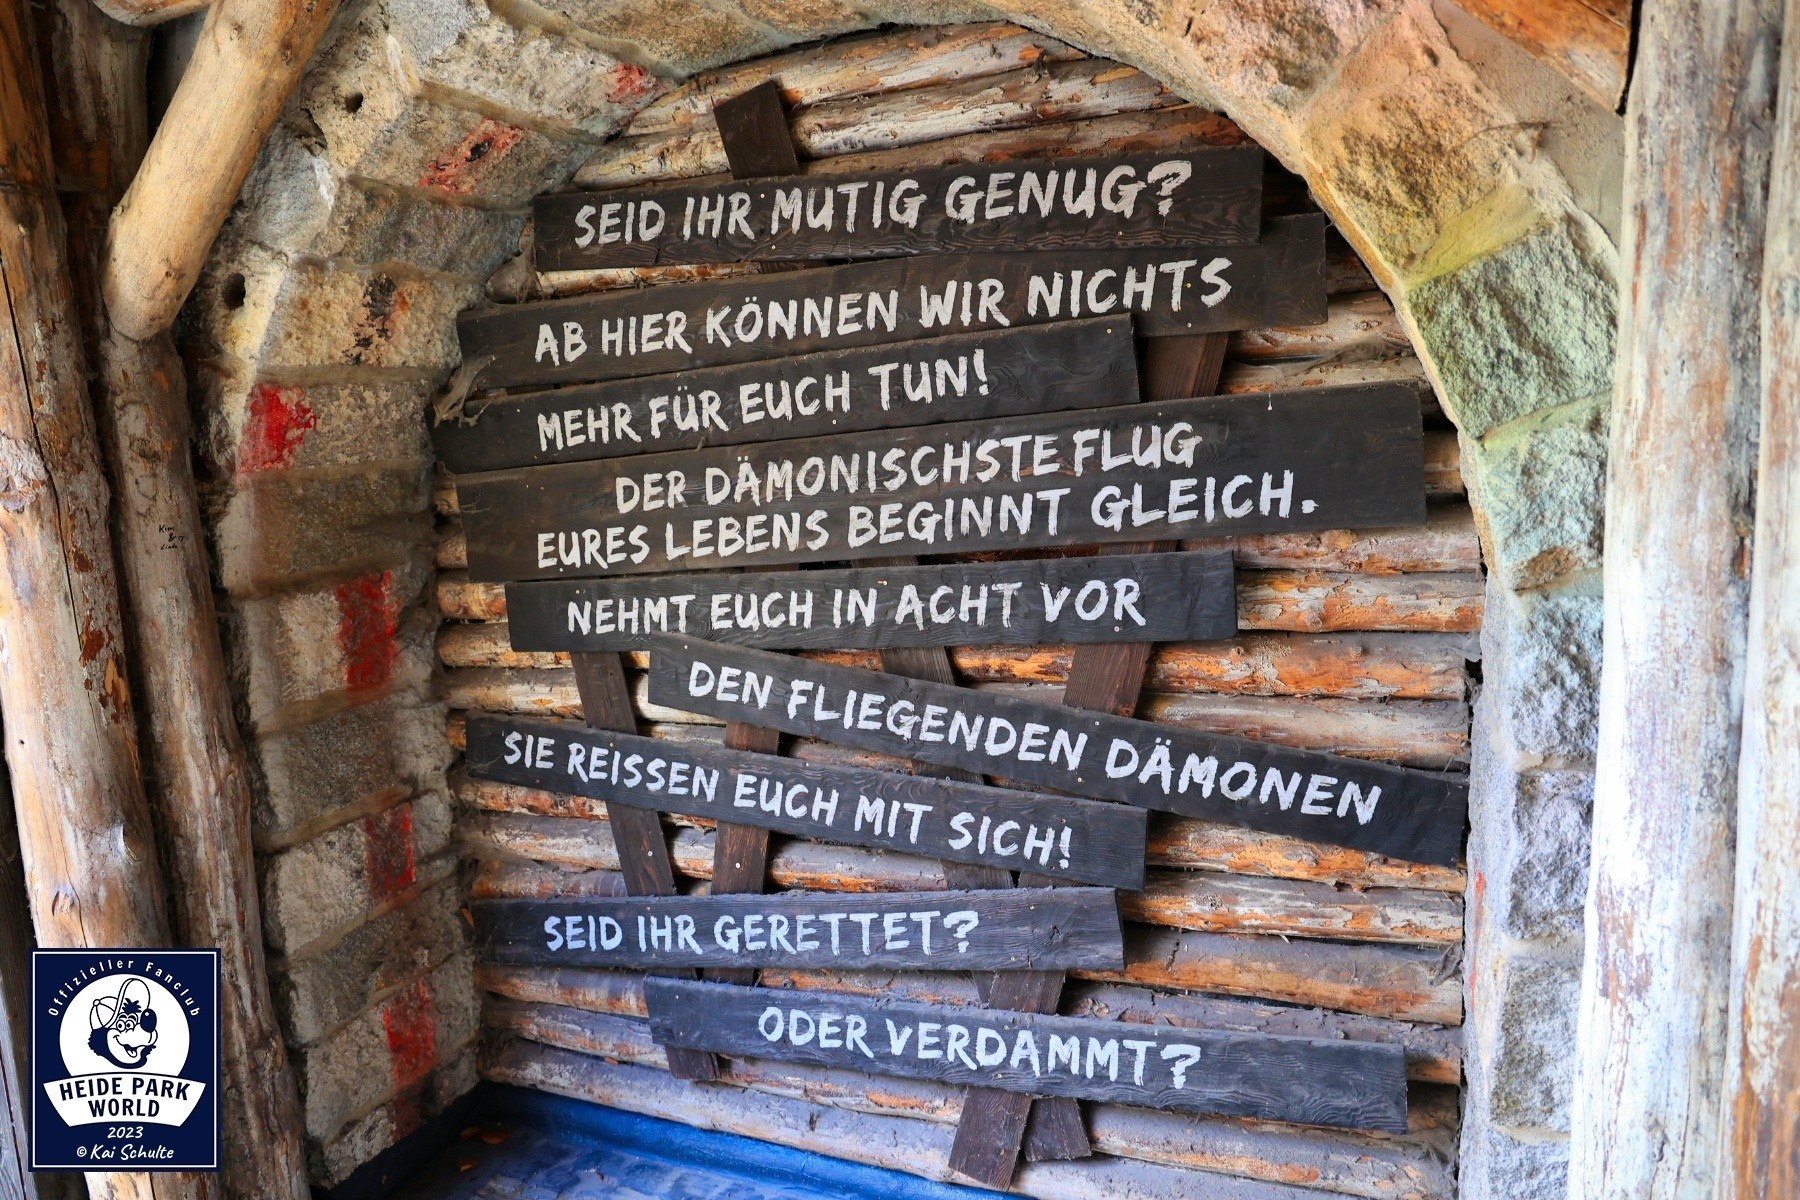 SEID IHR MUTIG GENUG?
AB HIER KÖNNEN WIR NICHTS
MEHR FÜR EUCH TUN!
DER DÄMONISCHSTE FLUG
EURES LEBENS BEGINNT GLEICH.
NEHMT EUCH IN ACHT VOR
DEN FLIEGENDEN DÄMONEN
SIE REISSEN EUCH MIT SICH!
SEID IHR GERETTET?
ODER VERDAMMT?
Offizieller Fanclub
HEIDE PARK
WORLD
2023
© Kai Schulte